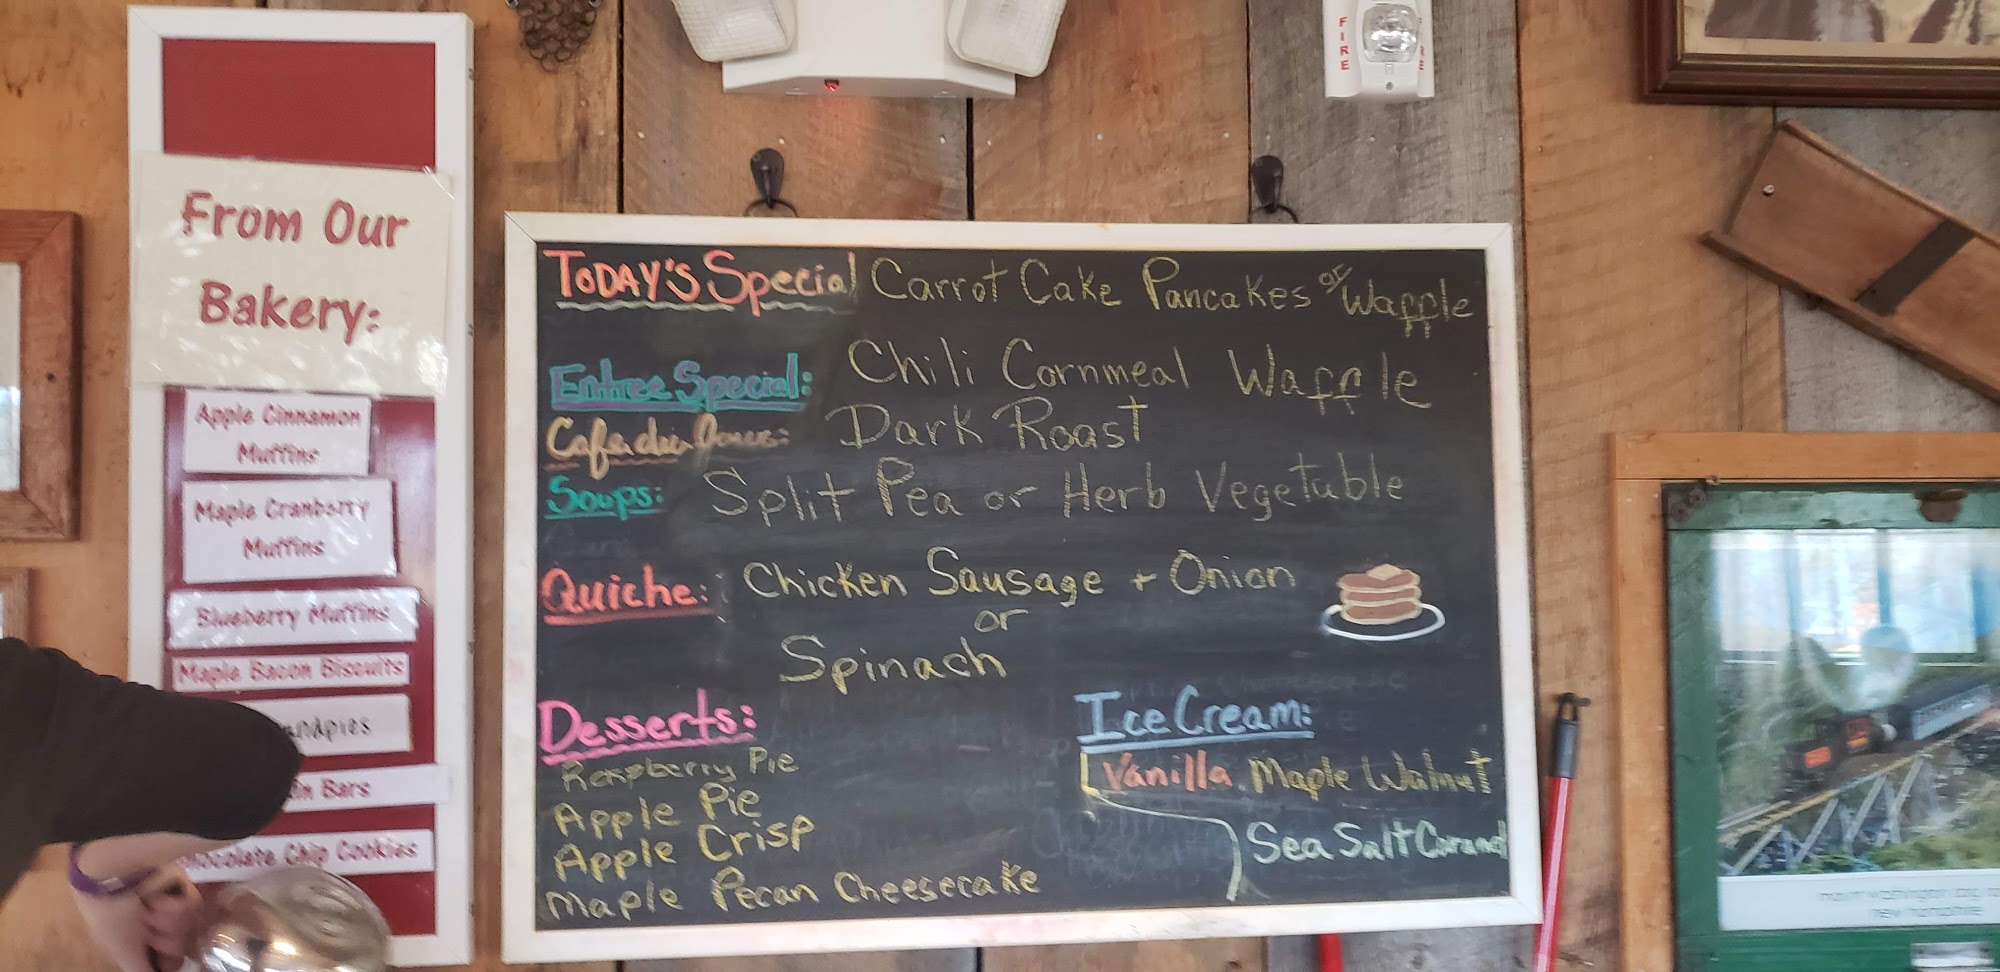 From Our
Bakery:
Apple Cinnamon
Muffins
Maple Cranberry
Muffins
Blueberry Muffins
Maple Bacon Biscuits
Bars
Chip Cookies
TODAY'S Special Carrot Cake Pancakes or Waffle
Entree Special: Chili Cornmeal Waffle
Dark Roast
Soups: Split Pea or Herb Vegetable
Quiche: Chicken Sausage + Onion
or
Spinach
Desserts:
Raspberry Pie
Apple Pie
Apple Crisp
Maple Pecan Cheesecake
Ice Cream:
Vanilla Maple Walnut
Sea Salt Caramel
FIRE